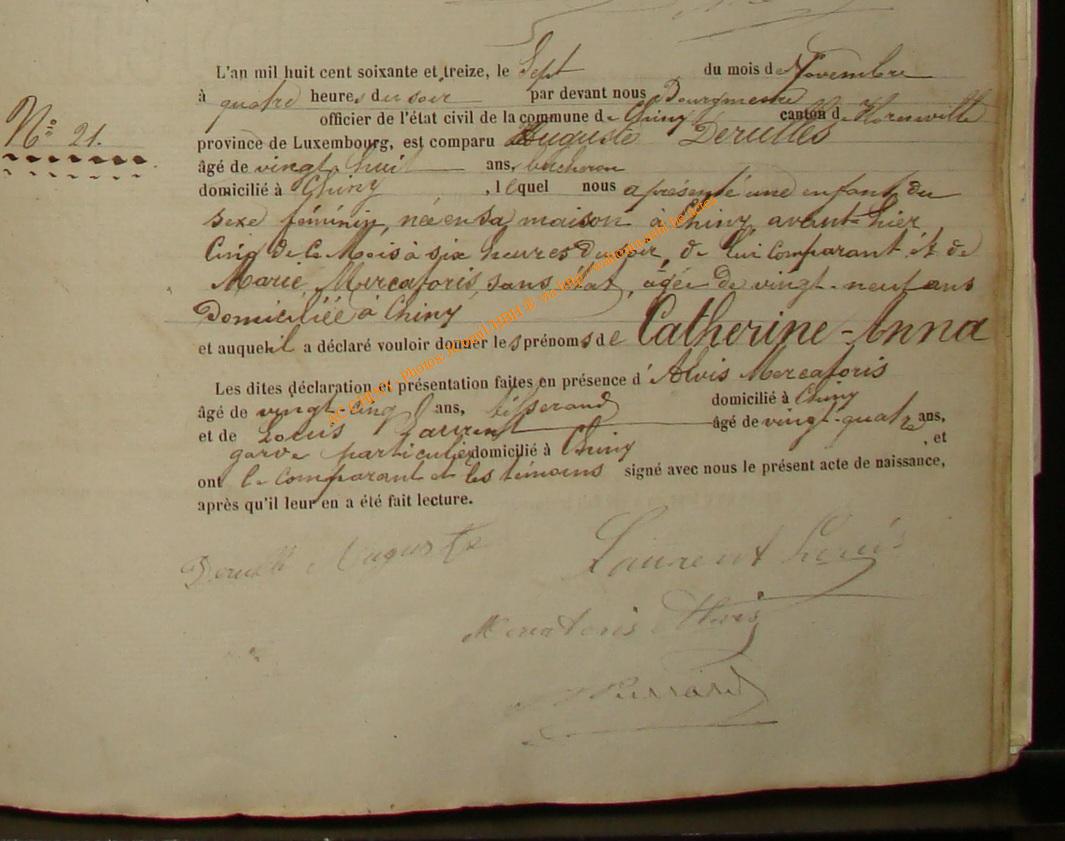 L'an mil huit cent soixante et treize, le Sept du mois de Novembre
à quatre heures du soir par devant nous Bourgmestre
officier de l'état civil de la commune de Chiny canton de Florenville
N° 21.
province de Luxembourg, est comparu Auguste Derulles
âgé de vingt huit ans, bucheron
domicilié à Chiny, lequel nous a présenté une enfant du
sexe féminin, née en sa maison à Chiny, avant hier
Cinq de ce Mois à six heures du soir, de lui comparant et de
Marie Mercatoris, sans état, âgée de vingt-neuf ans
Domiciliée à Chiny
et auquel il a déclaré vouloir donner les prénoms de Catherine-Anna
Les dites déclaration et présentation faites en présence d'Alvis Mercatoris
âgé de vingt cinq ans, tisserand domicilié à Chiny
et de Louis Laurent âgé de vingt-quatre ans,
garde particulier domicilié à Chiny, et
ont le comparant et les témoins signé avec nous le présent acte de naissance,
après qu'il leur en a été fait lecture.
Auguste
Laurent Louis
Mercatoris Alvis